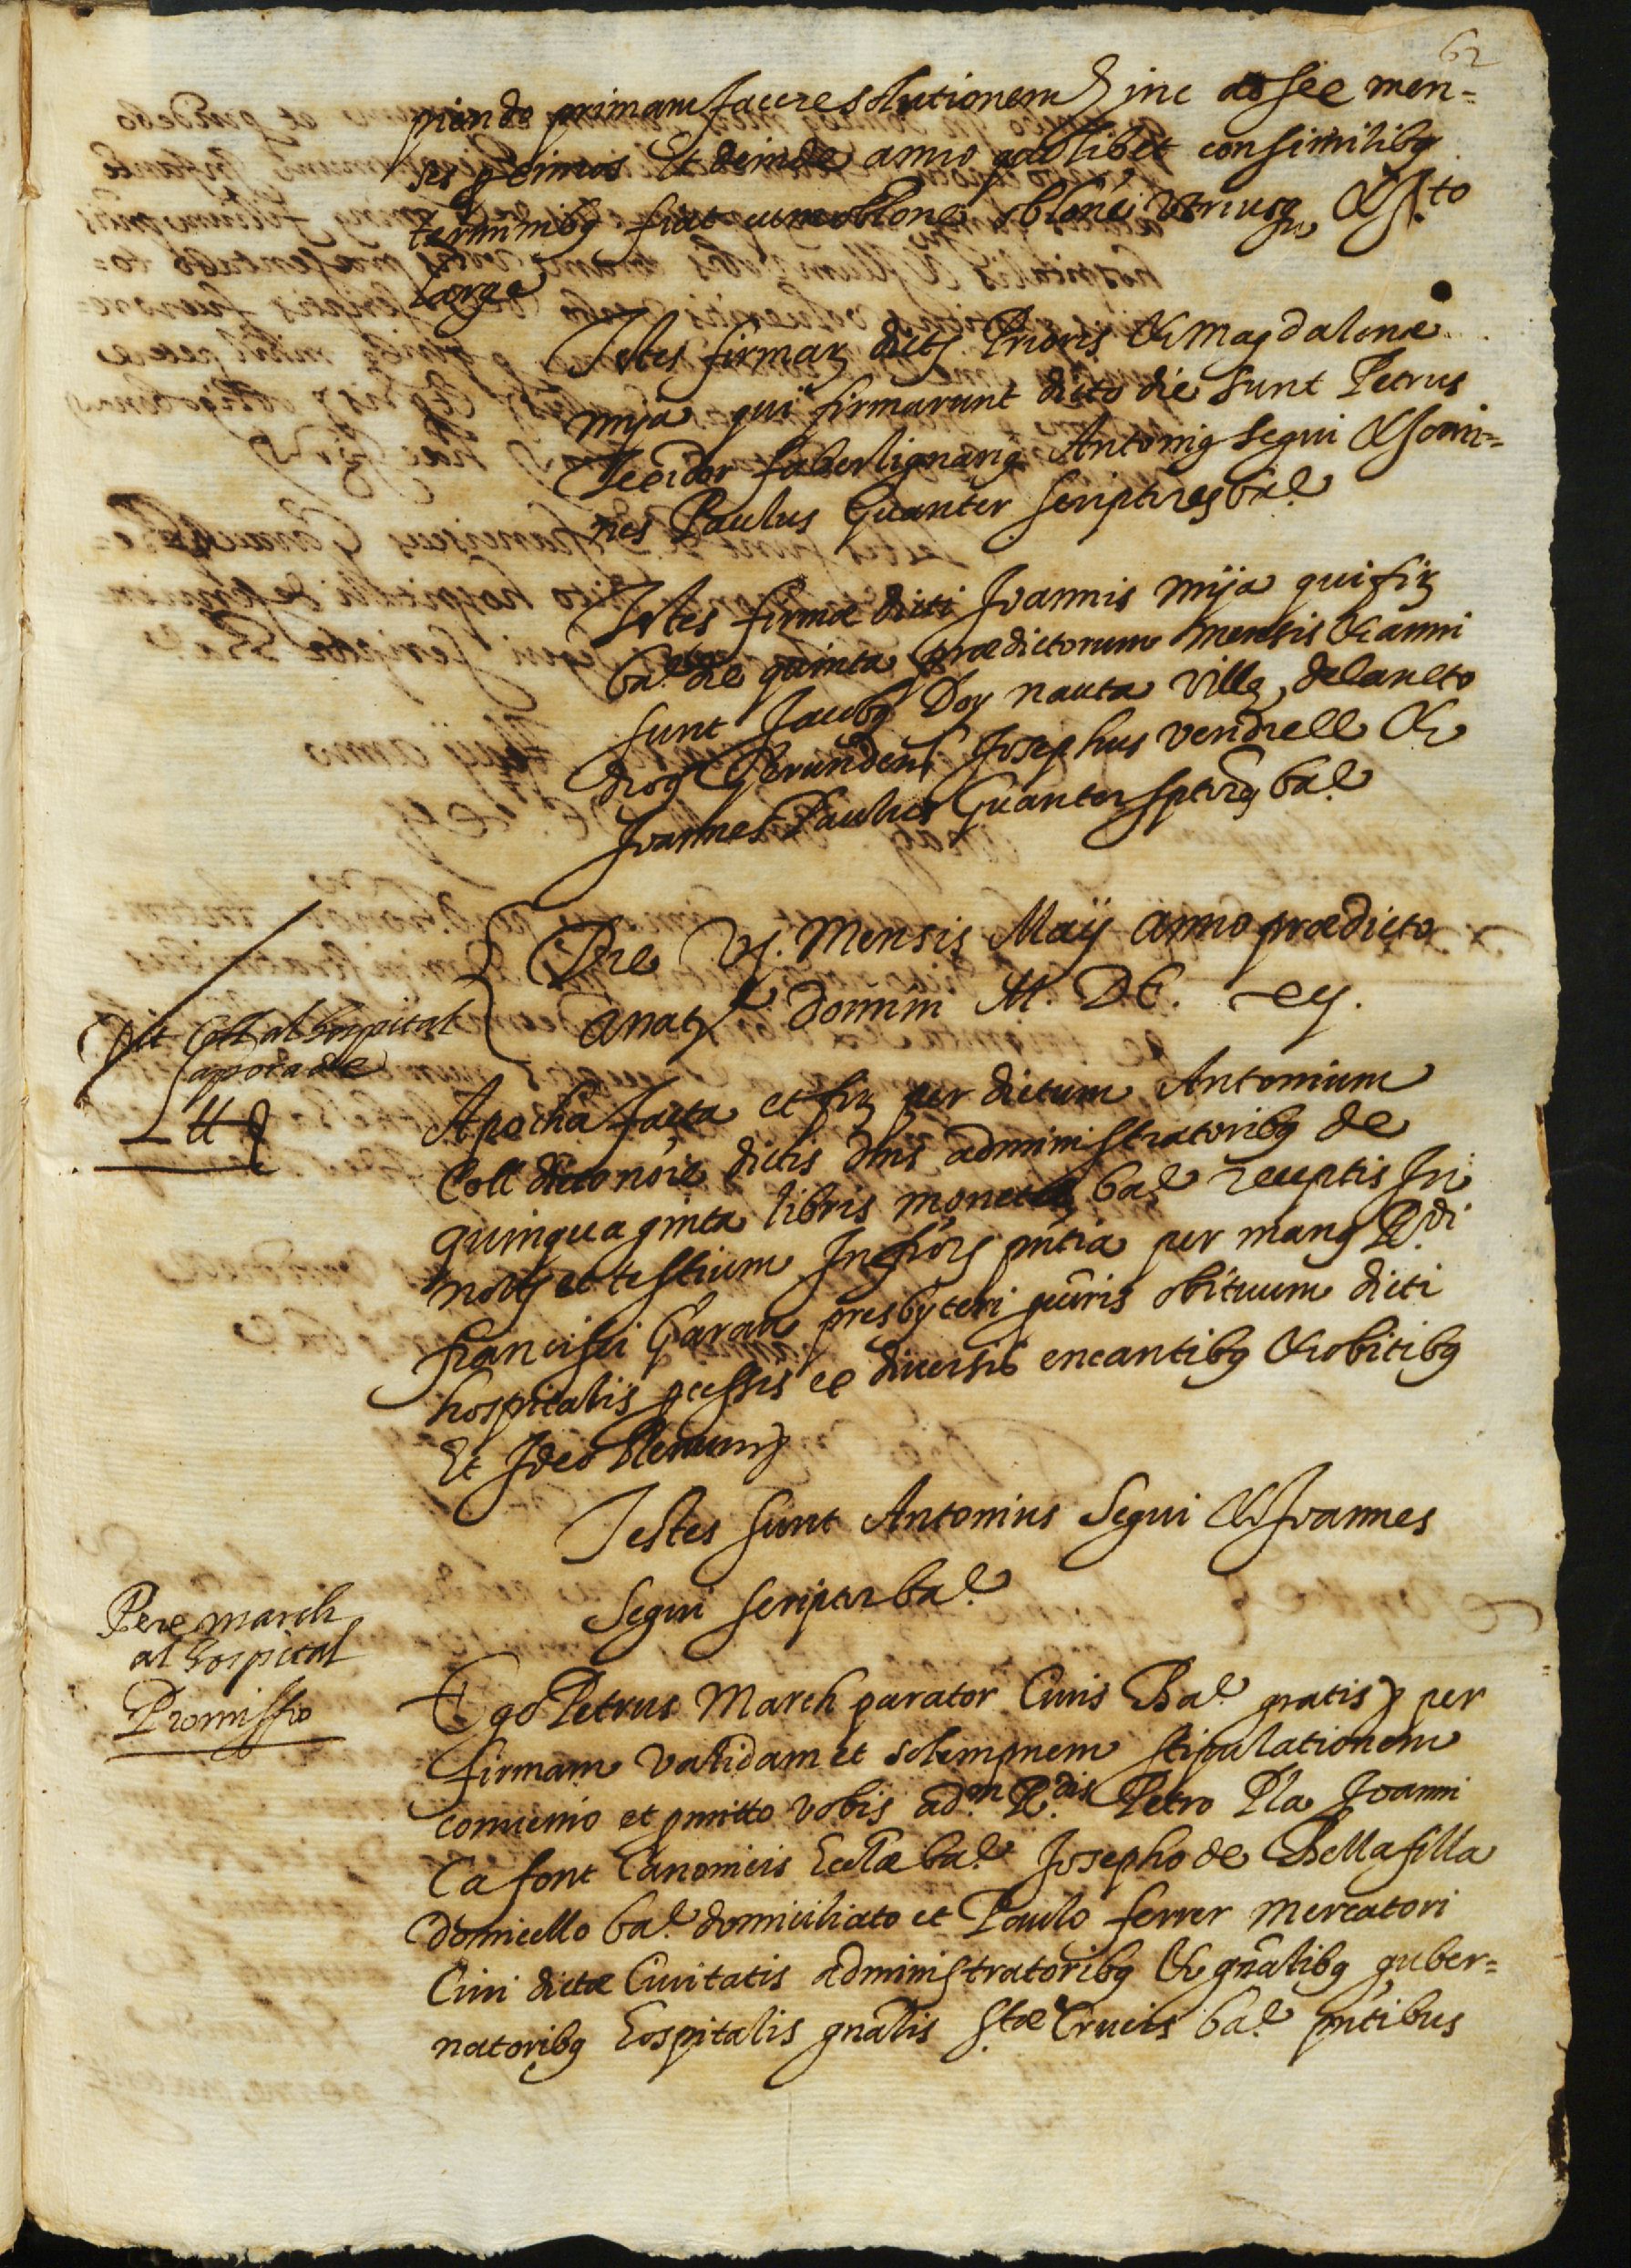 62
piendo primam facere solutionem hinc ad sex men=
ses p̱ximos Et deinde anno quolibet consimilibq
terminibq fiat cum oblone oblone utriusq &
large
Testes firmaꝝ dictꝝ Prioris & Magdalena
mija qui firmarunt dicto die sunt Petrus
Texidor faber lignariq Antoniq Segui & Joan=
nes Paulus Guanter scriptores bar.
Testes firmæ dicti Joannis mija qui fir
bar. die quinta prædictorum mensis & anni
sunt Jacobq Doy nauta Villæ de Caneto
dioc Gerunden Josephus Vendrell &
Joannes Paulus Guanter sptres bar.
Die Vj. Mensis Maij anno prædicto
a nat. domini M. DC.
Dit Coll al hospital
apoca de
L ℔
Apocha facta et fir per dictum Antonium
Coll dicto nōie dictis dnis administratoribq de
quinquaginta libris monetæ bar. receptis In
notꝝ et testium Infrōꝝ pn̄tia per manq R.di
francisci Garau presbyteri obituum dicti
hospitalis p̱cessis ex diversis encantibq & obitibq
Et Ideo Renun
Testes sunt Antonius Segui & Joannes
Segui scriptr bar.
Pere march
al hospital
Promissio
Ego Petrus March parator Civis Bar. gratis per
firmam Validam et solempnem stipulationem
convenio et p̱mitto vobis ad.m R.dis Petro Pla Joanni
Ca font Canonicis Ecclæ bar. Josepho de Bellafilla
domicello bar. domiciliato et Paulo ferrer Mercatori
Civi dictæ Civitatis administratoribq & gnālibq guber=
natoribq hospitalis gnālis Stæ Crucis bar. pn̄tibus